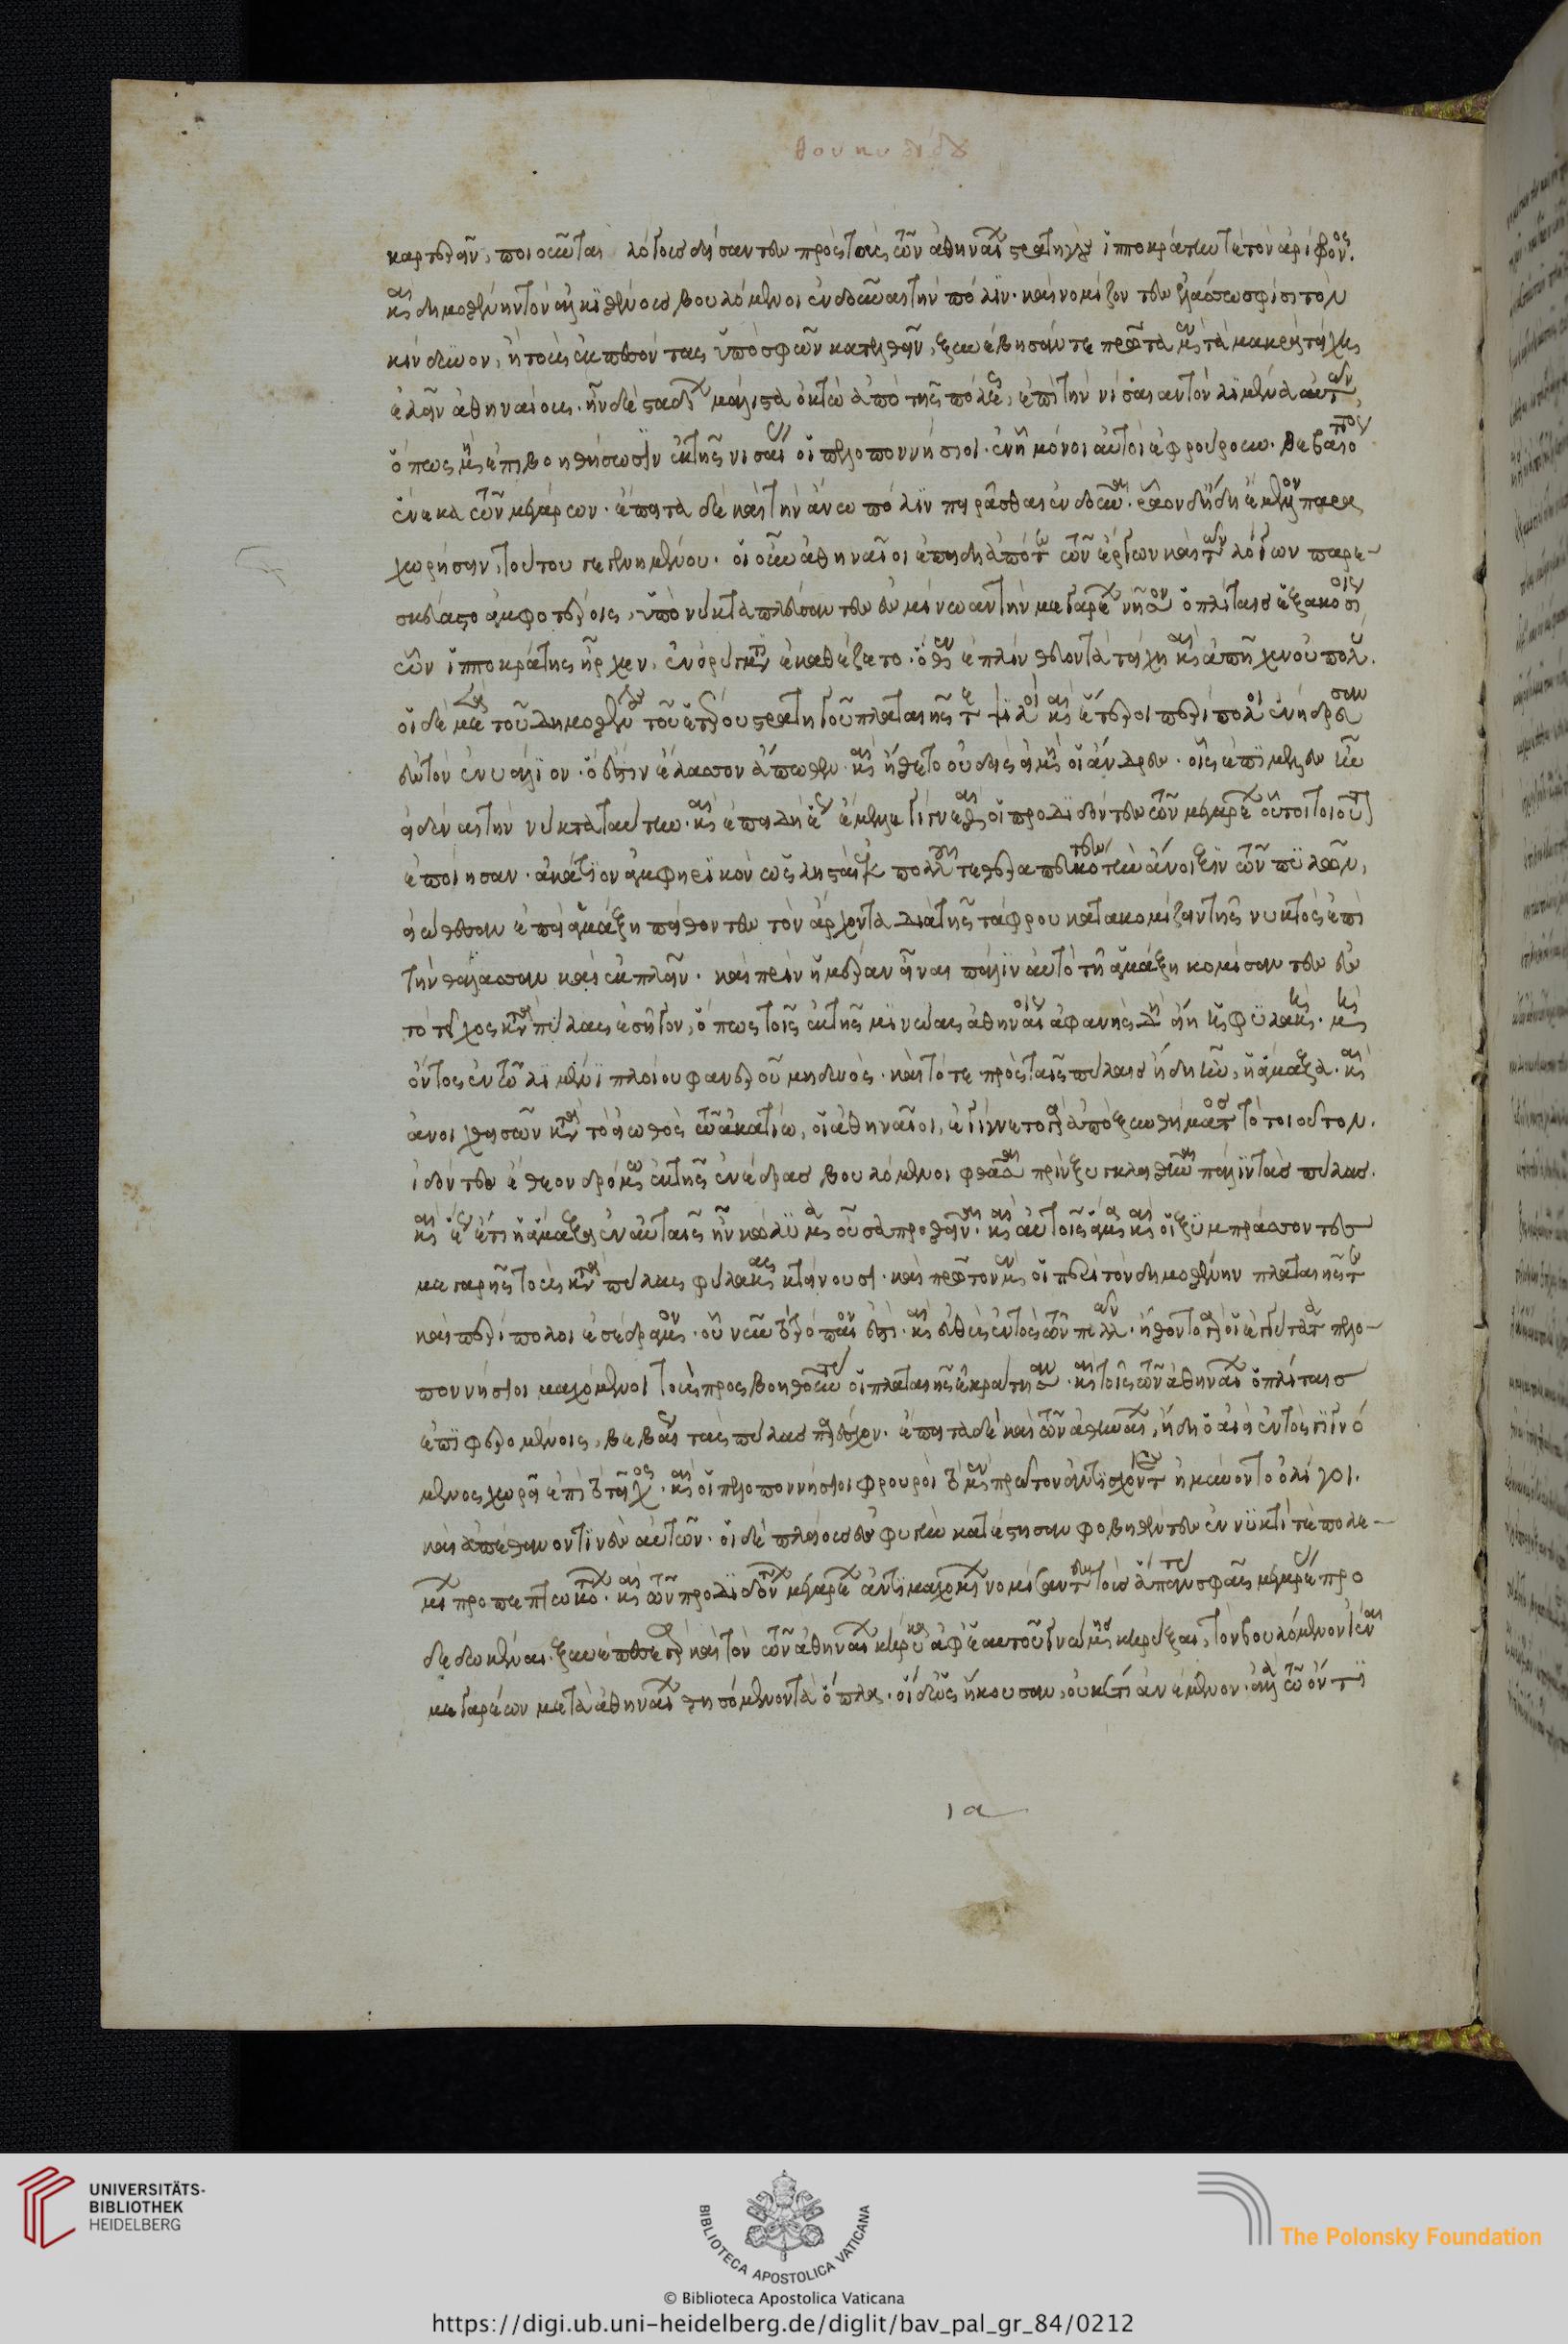 θουκυδίδου
καρτερεῖν, ποιοῦνται λόγους δείσαντες πρὸς τοὺς τῶν ἀθηναίων στρατηγοὺς ἱπποκράτην τε τὸν ἀρίφρονος.
καὶ δημοσθένην τὸν ἀλκισθένους βουλόμενοι ἐνδοῦναι τὴν πόλιν. καὶ νομίζοντες ἐλάσσω σφίσι τὸν
κίνδυνον, ἢ τοὺς ἐκπεσόντας ὑπὸ σφῶν κατελθεῖν, ξυνέβησάν τε πρῶτα μὲν τὰ μακρὰ τείχη
ἑλεῖν ἀθηναίους. ἦν δὲ σταδίων μάλιστα ὀκτὼ ἀπὸ τῆς πόλεως, ἐπὶ τὴν νίσαιαν τὸν λιμένα αὐτῶν,
ὅπως μὴ ἐπιβοηθήσωσιν ἐκ τῆς νισαίας οἱ πελοποννήσιοι. ἐν ᾗ μόνοι αὐτοὶ ἐφρούρουν. βεβαιότητος
ἕνεκα τῶν μεγάρων. ἔπειτα δὲ καὶ τὴν ἄνω πόλιν πειρᾶσθαι ἐνδοῦναι. ῥᾶον δ' ἤδη ἔμελλον παρα
χωρήσειν, τούτου γεγενημένου. οἱ οὖν ἀθηναῖοι ἐπειδὴ ἀπό τε τῶν ἔργων καὶ τῶν λόγων παρε-
σκεύαστο ἀμφοτέροις, ὑπὸ νύκτα πλεύσαντες ἐς μινώαν τὴν μεγαρέων νῆσον ὁπλίταις ἑξακοσίοις
ὧν ἱπποκράτης ἦρχεν, ἐν ὀρύγματι ἐκαθέζετο. ὅθεν ἐπλίνθευον τὰ τείχη καὶ ἀπεῖχεν οὐ πολύ.
οἱ δὲ μετὰ τοῦ δημοσθένους τοῦ ἑτέρου στρατηγοῦ πλαταιῆς τε ψιλοὶ καὶ ἕτεροι περίπολοι ἐνήδρευσαν
ἐς τὸν ἐνυάλιον. ὅ ἐστιν ἔλασσον ἄπωθεν. καὶ ἤσθετο οὐδεὶς εἰ μὴ οἱ ἄνδρες. οἷς ἐπιμελὲς ἦν
εἰδέναι τὴν νύκτα ταύτην. καὶ ἐπειδὴ ἕως ἔμελλε γίγνεσθαι οἱ προδιδόντες τῶν μεγαρέων οὗτοι τοιοῦτον
ἐποίησαν. ἀκάτιον ἀμφηρικὸν ὡς λησταὶ ἐκ πολλοῦ τεθεραπευκότες τὴν ἄνοιξιν τῶν πυλῶν,
εἰώθεσαν ἐπὶ ἁμάξη πείθοντες τὸν ἄρχοντα διὰ τῆς τάφρου κατακομίζειν τῆς νυκτὸς ἐπὶ
τὴν θάλασσαν καὶ ἐκπλεῖν. καὶ πρὶν ἡμέραν εἶναι πάλιν αὐτὸ τῇ ἁμάξη κομίσαντες ἐς
τὸ τεῖχος κατὰ πύλας ἐσῆγον, ὅπως τοῖς ἐκ τῆς μινώας ἀθηναίοις ἀφανὴς δὴ εἴη ἡ φυλακή. μὴ
ὄντος ἐν τῷ λιμένι πλοίου φανεροῦ μηδενός. καὶ τότε πρὸς ταῖς πύλαις ἤδη ἦν, ἡ ἅμαξα. καὶ
ἀνοιχθεισῶν κατὰ τὸ εἰωθὸς τῷ ἀκατίω, οἱ ἀθηναῖοι, ἐγίγνετο γὰρ ἀπὸ ξυνθήματος τὸ τοιοῦτον.
ἰδόντες ἔθεον δρόμω ἐκ τῆς ἐνέδρας βουλόμενοι φθάσαι πρὶν ξυγκλεισθῆναι πάλιν τὰς πύλας.
καὶ ἕως ἔτι ἡ ἅμαξα ἐν αὐταῖς ἦν κώλυμα οὖσα προσθεῖναι. καὶ αὐτοῖς ἅμα καὶ οἱ ξυμπράσσοντες
μεγαρῆς τοὺς κατὰ πύλας φύλακας κτείνουσι. καὶ πρῶτον μὲν οἱ περὶ τὸν δημοσθένην πλαταιῆς τε
καὶ περίπολοι ἐσέδραμον. οὗ νῦν τὸ τρόπαιόν ἐστι. καὶ εὐθὺς ἐντὸς τῶν πυλῶν. ἤσθοντο γὰρ οἱ ἐγγύτατα πελο-
ποννήσιοι μαχόμενοι τοὺς προσβοηθοῦντας οἱ πλαταιῆς ἐκράτησαν. καὶ τοῖς τῶν ἀθηναίων ὁπλίταις
ἐπιφερομένοις, βεβαίους τὰς πύλας παρέσχον. ἔπειτα δὲ καὶ τῶν ἀθηναίων, ἤδη ὁ αἰεὶ ἐντὸς γιγνό
μενος χωρεῖ ἐπὶ τὸ τεῖχος. καὶ οἱ πελοποννήσιοι φρουροὶ τὸ μὲν πρῶτον ἀντισχόντες ἠμύνοντο ὀλίγοι.
καὶ ἀπέθανόν τινες αὐτῶν. οἱ δὲ πλείους ἐς φυγὴν κατέστησαν φοβηθέντες ἐν νυκτί τε πολε-
μίων προσπεπτωκότων. καὶ τῶν προδιδόντων μεγαρέων ἀντιμαχομένων νομίσαντες τοὺς ἅπαντας σφᾶς μεγαρέας προ
δεδωκέναι. ξυνέπεσε γὰρ καὶ τὸν τῶν ἀθηναίων κήρυκα ἀφ' ἑαυτοῦ γνώμης κηρύξαι, τὸν βουλόμενον ἰέναι
μεγαρέων μετὰ ἀθηναίων θησόμενον τὰ ὅπλα. οἱ δ' ὡς ἤκουσαν, οὐκέτι ἀνέμενον. ἀλλὰ τῷ ὄντι
ια
UNIVERSITÄTS-
BIBLIOTHEK
HEIDELBERG
BIBLIOTECA APOSTOLICA VATICANA
The Polonsky Foundation
© Biblioteca Apostolica Vaticana
https://digi.ub.uni-heidelberg.de/diglit/bav_pal_gr_84/0212